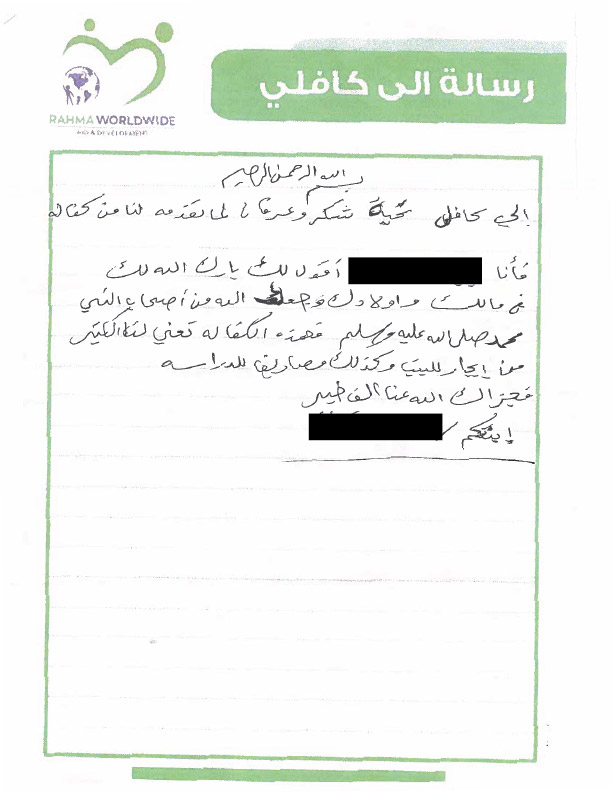 رسالة الى كافلي
RAHMA WORLDWIDE
AID & DEVELOPMENT
بسم الله الرحمن الرحيم
إلى كافلي تحية شكر وعرفان لما تقدمه لنا من كفاله
فأنا أقول لك بارك الله لك
في مالك واولادك وجعلك الله من أصحاب النبي
محمد صلى الله عليه وسلم فهذه الكفاله تعني لنا الكثير
من إيجار للبيت وكذلك مصاريف للدراسه
فجزاك الله عنا الف خير
إبنتكم